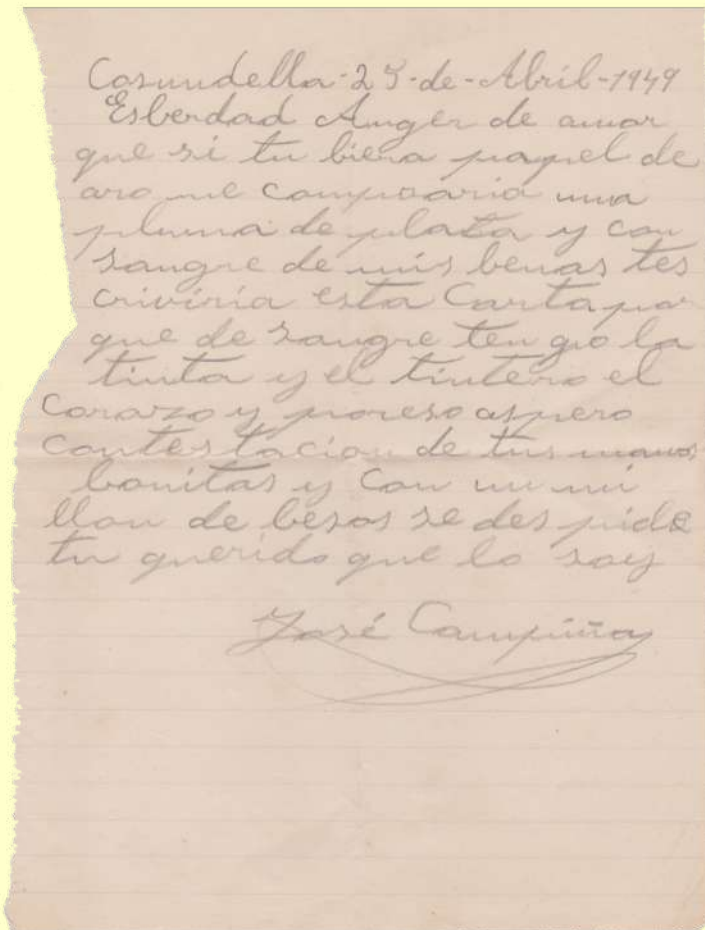 Cosundella-25-de-Abril-1949
Esberdad Anger de amar
que si tu biera papel de
oro me compraria una
pluma de plata y con
sangre de mis benas tes
criviria esta Carta por
que de sangre ten go la
tinta y el tintero el
Corazo y poreso aspero
contes tacion de tus manos
bonitas y Con un mi
llon de besos se des pide
tu querido que lo soy
José Campiña